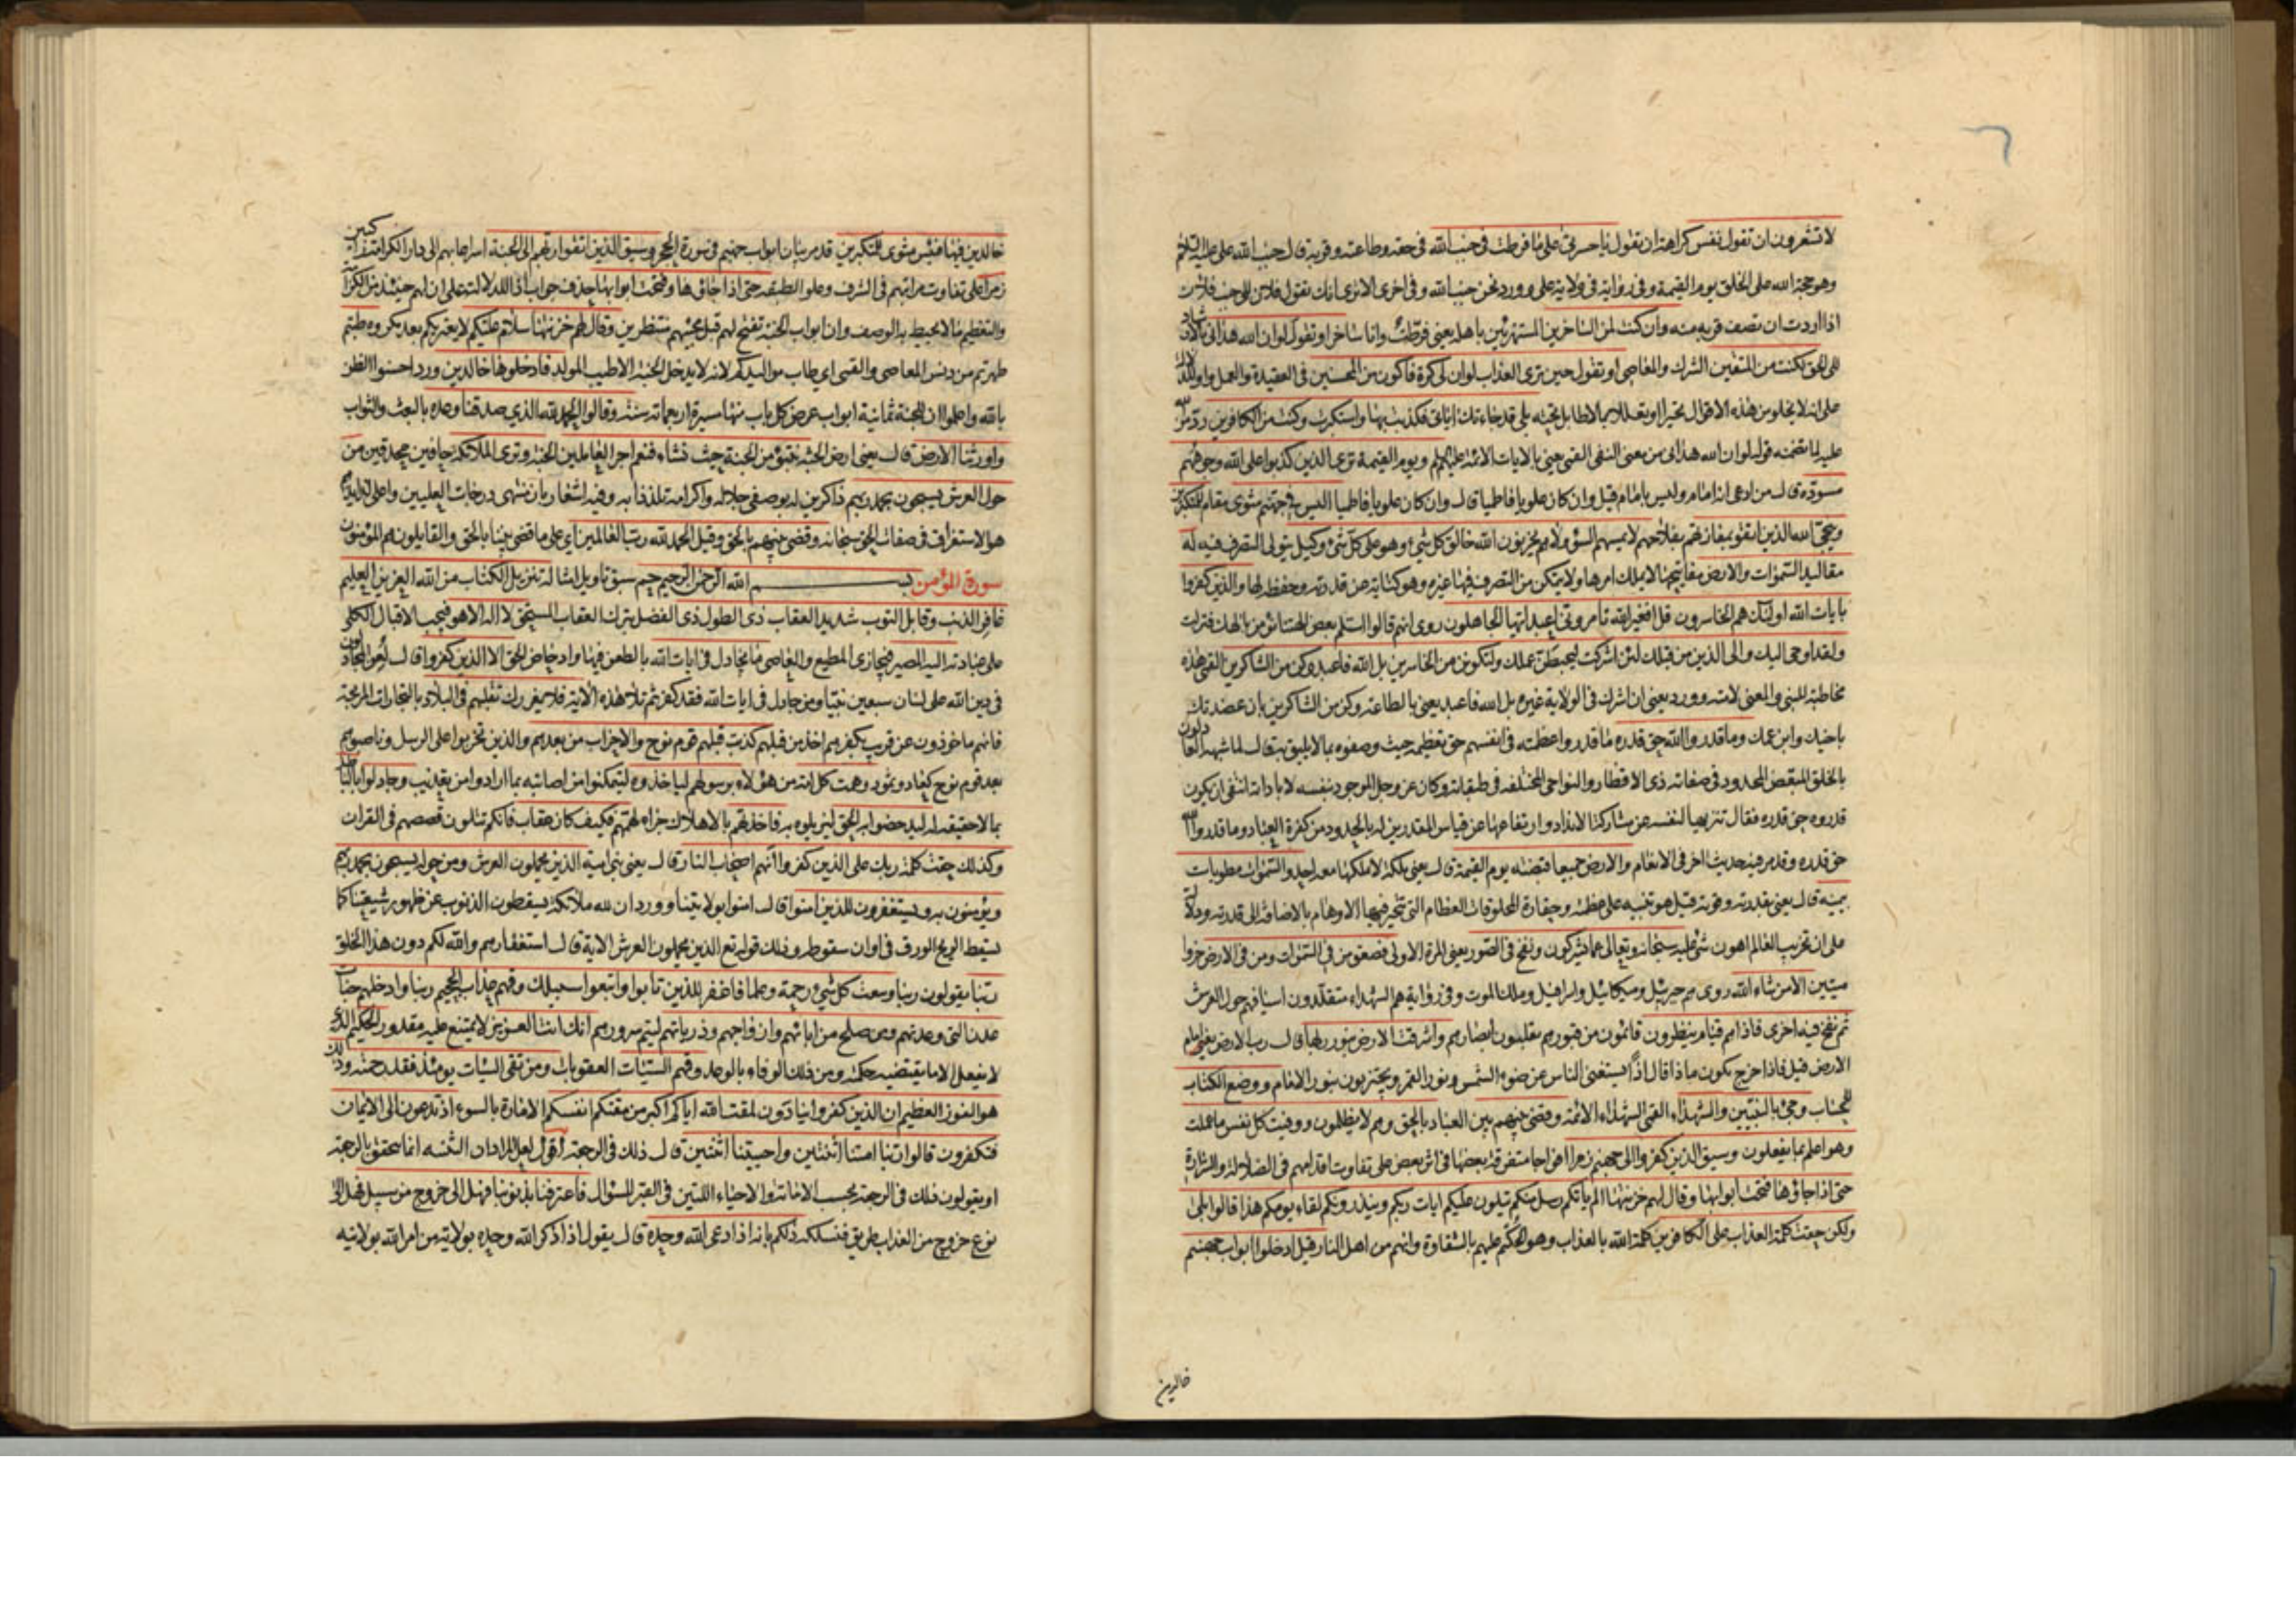 لا تشعرون ان تقول نفس كراهة ان تقول يا حسرتى على ما فرطت فى جنب الله فى حقه وطاعته وقربه قال جنب الله على عليه السلام
وهو حجة الله على الخلق يوم القيمة وفى رواية فى ولاية على وورد نحن جنب الله وفى اخرى الا ترى انك تقول فلان الى جنب فلان
اذا اردت ان تصف قربه منه وان كنت لمن الساخرين المستهزئين باهله يعنى فرطت وانا ساخر او تقول لو ان الله هدانى بالارشاد
الى الحق لكنت من المتقين الشرك والمعاصى او تقول حين ترى العذاب لو ان لى كرة فاكون من المحسنين فى العقيدة والعمل واو للدلالة
على انه لا يخلو من هذه الاقوال تحيرا او تعللا بما لا طائل تحته بلى قد جاءتك اياتى فكذبت بها واستكبرت وكنت من الكافرين رد من الله
عليه لما تضمنه قوله لو ان الله هدانى من معنى النفى القمى يعنى بالايات الائمة عليهم السلم ويوم القيمة ترى الذين كذبوا على الله وجوههم
مسودة قال من ادعى انه امام وليس بامام قيل وان كان علويا فاطميا قال وان كان علويا فاطميا اليس فى جهنم مثوى مقام للمتكبرين
وينجى الله الذين اتقوا بمفازتهم بفلاحهم لا يمسهم السوء ولا هم يحزنون الله خالق كل شئ وهو على كل شئ وكيل يتولى التصرف فيه له
مقاليد السموات والارض مفاتيحها لا يملك امرها ولا يتمكن من التصرف فيها غيره وهو كناية عن قدرته وحفظه لها والذين كفروا
بايات الله اولئك هم الخاسرون قل افغير الله تامرونى اعبد ايها الجاهلون روى انهم قالوا استلم بعض الهتنا نؤمن بالهك فنزلت
ولقد اوحى اليك والى الذين من قبلك لئن اشركت ليحبطن عملك ولتكونن من الخاسرين بل الله فاعبد وكن من الشاكرين القمى هذه
مخاطبة للنبى والمعنى لامته وورد يعنى ان اشرك فى الولاية غيره بل الله فاعبد يعنى بالطاعة وكن من الشاكرين بان عضدتك
باخيك وابن عمك وما قدروا الله حق قدره ما قدروا عظمته فى انفسهم حق تعظيمه حيث وصفوه بما لا يليق به قال لما شبهه العادلون
بالخلق المبعض المحدود فى صفاته ذى الاقطار والنواحى المختلفه فى طبقاته وكان عز وجل الموجود بنفسه لا باداته انتفى ان يكون
قدروه حق قدره فقال تنزيها لنفسه عن مشاركة الانداد وارتفاعها عن قياس المقدرين له بالحدود من كفرة العباد وما قدروا الله
حق قدره وقد مر فيه حديث اخر فى الانعام والارض جميعا قبضته يوم القيمة قال يعنى ملكه لا يملكها معه احد والسموات مطويات
بيمينه قال يعنى بقدرته وقوته قيل هو تنبيه على عظمته وحقارة المخلوقات العظام التى تتحير فيها الاوهام بالاضافة الى قدرته ودلالة
على ان تخريب العالم اهون شئ عليه سبحانه وتعالى عما يشركون ونفخ فى الصور يعنى المرة الاولى فصعق من فى السموات ومن فى الارض خروا
ميتين الا من شاء الله روى هم جبرئيل وميكائيل واسرافيل وملك الموت وفى رواية هم الشهداء متقلدون اسيافهم حول العرش
ثم نفخ فيه اخرى فاذا هم قيام ينظرون قائمون من قبورهم يقلبون ابصارهم واشرقت الارض بنور ربها قال رب الارض يعنى امام
الارض قيل فاذا خرج يكون ماذا قال اذا يستغنى الناس عن ضوء الشمس ونور القمر ويجتزون بنور الامام ووضع الكتاب
للحساب وجئ بالنبيين والشهداء القمى الشهداء الائمة وقضى بينهم بين العباد بالحق وهم لا يظلمون ووفيت كل نفس ما عملت
وهو اعلم بما يفعلون وسيق الذين كفروا الى جهنم زمرا افواجا متفرقة بعضها فى اثر بعض على تفاوت اقدامهم فى الضلالة والشرارة
حتى اذا جاؤها فتحت ابوابها وقال لهم خزنتها الم ياتكم رسل منكم يتلون عليكم ايات ربكم وينذرونكم لقاء يومكم هذا قالوا بلى
ولكن حقت كلمة العذاب على الكافرين كلمة الله بالعذاب وهو الحكم عليهم بالشقاوة وانهم من اهل النار قيل ادخلوا ابواب جهنم
خالدين
خالدين فيها فبئس مثوى المتكبرين قد مر بيان ابواب جهنم فى سورة الحجر وسيق الذين اتقوا ربهم الى الجنة اسراعا بهم الى دار الكرامة
زمرا على تفاوت مراتبهم فى الشرف وعلو الطبقه حتى اذا جاؤها وفتحت ابوابها حذف جواب اذا للدلالة على ان لهم حينئذ من الكرامة
والتعظيم ما لا يحيط به الوصف وان ابواب الجنة تفتح لهم قبل مجيئهم منتظرين وقال لهم خزنتها سلام عليكم لا يعتريكم بعد مكروه طبتم
طهرتم من دنس المعاصى والقمى اى طاب مواليدكم لانه لا يدخل الجنة الا طيب المولد فادخلوها خالدين ورد احسنوا الظن
بالله واعلموا ان للجنة ثمانية ابواب عرض كل باب منها مسيرة اربعمائة سنة وقالوا الحمد لله الذى صدقنا وعده بالبعث والثواب
واورثنا الارض قال يعنى ارض الجنة نتبوء من الجنة حيث نشاء فنعم اجر العاملين الجنة وترى الملائكة حافين محدقين من
حول العرش يسبحون بحمد ربهم ذاكرين له بوصفى جلاله واكرامه تلذذا به وفيه اشعار بان منتهى درجات العليين واعلى لذايذهم
هو الاستغراق فى صفات الحق سبحانه وقضى بينهم بالحق وقيل الحمد لله رب العالمين اى على ما قضى بيننا بالحق والقايلون هم المؤمنون
سورة المؤمن بسم الله الرحمن الرحيم حم سبق تاويل امثاله تنزيل الكتاب من الله العزيز العليم
غافر الذنب وقابل التوب شديد العقاب ذى الطول ذى الفضل بترك العقاب المستحق لا اله الا هو فيجب الاقبال الكلى
على عبادته اليه المصير فيجازى المطيع والعاصى ما يجادل فى ايات الله بالطعن فيها وادحاض الحق الا الذين كفروا قال لعن المجادلون
فى دين الله على لسان سبعين نبيا ومن جادل فى ايات الله فقد كفر ثم تلا هذه الاية فلا يغررك تقلبهم فى البلاد بالتجارات المربحة
فانهم ماخوذون عن قريب بكفرهم اخذ من قبلهم كذبت قبلهم قوم نوح والاحزاب من بعدهم والذين تحزبوا على الرسل وناصبوهم
بعد قوم نوح كعاد وثمود وهمت كل امة من هؤلاء برسولهم لياخذوه ليتمكنوا من اصابته بما ارادوا من تعذيب وجادلوا بالباطل
بما لا حقيقة له ليدحضوا به الحق ليزيلوه به فاخذتهم بالاهلاك جزاء لهمتهم فكيف كان عقاب فانكم تتلون قصصهم فى القران
وكذلك حقت كلمة ربك على الذين كفروا انهم اصحاب النار قال يعنى بنى امية الذين يحملون العرش ومن حوله يسبحون بحمد ربهم
ويؤمنون به ويستغفرون للذين امنوا قال امنوا بولايتنا وورد ان لله ملائكة يسقطون الذنوب عن ظهور شيعتنا كما
يسقط الريح الورق فى اوان سقوطه وذلك قوله تع الذين يحملون العرش الاية قال استغفارهم والله لكم دون هذا الخلق
ربنا يقولون ربنا وسعت كل شئ رحمة وعلما فاغفر للذين تابوا واتبعوا سبيلك وقهم عذاب الجحيم ربنا وادخلهم جنات
عدن التى وعدتهم ومن صلح من ابائهم وازواجهم وذرياتهم ليتم سرورهم انك انت العزيز لا يمتنع عليه مقدور الحكيم الذى
لا يفعل الا ما يقتضيه حكمته ومن ذلك الوفاء بالوعد وقهم السيئات العقوبات ومن تق السيئات يومئذ فقد رحمته وذلك
هو الفوز العظيم ان الذين كفروا ينادون لمقت الله اياكم اكبر من مقتكم انفسكم الامارة بالسوء اذ تدعون الى الايمان
فتكفرون قالوا ربنا امتنا اثنتين واحييتنا اثنتين قال ذلك فى الرجعة اقول لعل المراد ان التثنية انما تتحقق بالرجعة
او يقولون ذلك فى الرجعة بحسب الاماتة والاحياء اللتين فى القبر للسؤال فاعترفنا بذنوبنا فهل الى خروج من سبيل فهل الى
نوع خروج من العذاب طريق فنسلكه ذلكم بانه اذا دعى الله وحده قال يقول اذا ذكر الله وحده بولاية من امر الله بولايته